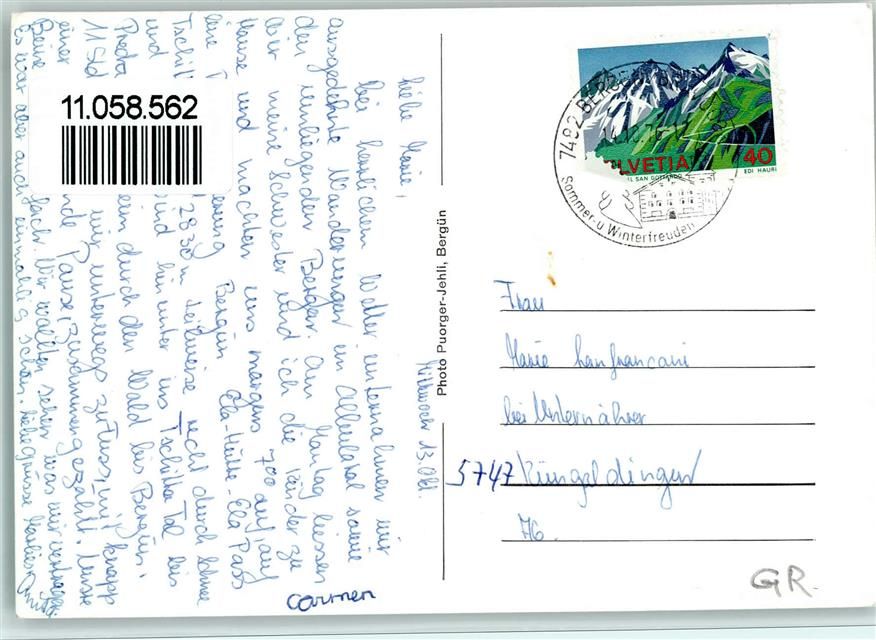 Mittwoch 13. Okt.
Liebe Marie,
bei herrlichem Wetter unternahmen wir
ausgedehnte Wanderungen im Albulatal sowie
den umliegenden Bergen. Am Montag liessen
wir meine Schwester und ich die Kinder zu
Hause und machten uns morgens 7 00 auf, auf
eine Bergün Ela-Hütte - Ela Pass
Tschi 2830 m teilweise recht durch Schnee
und sind hinunter ins Tschitta Tal bis
Preda durch den Wald bis Bergün.
11 Std wir unterwegs zu Fuss, mit knapp
einer Pause, zusammengezählt. Unsere
Beine Wir wollten sehen was wir vertragen.
Es war aber auch einmalig schön. Liebe Grüsse
Carmen
11.058.562
Photo Puorger-Jehli, Bergün
7482 BERGÜN
Sommer- u Winterfreuden
HELVETIA 40
SAN GOTTARDO
EDI HAURI
Frau
Marie Lanfrancani
bei Unternährer
5747 Küngoldingen
AG.
GR.